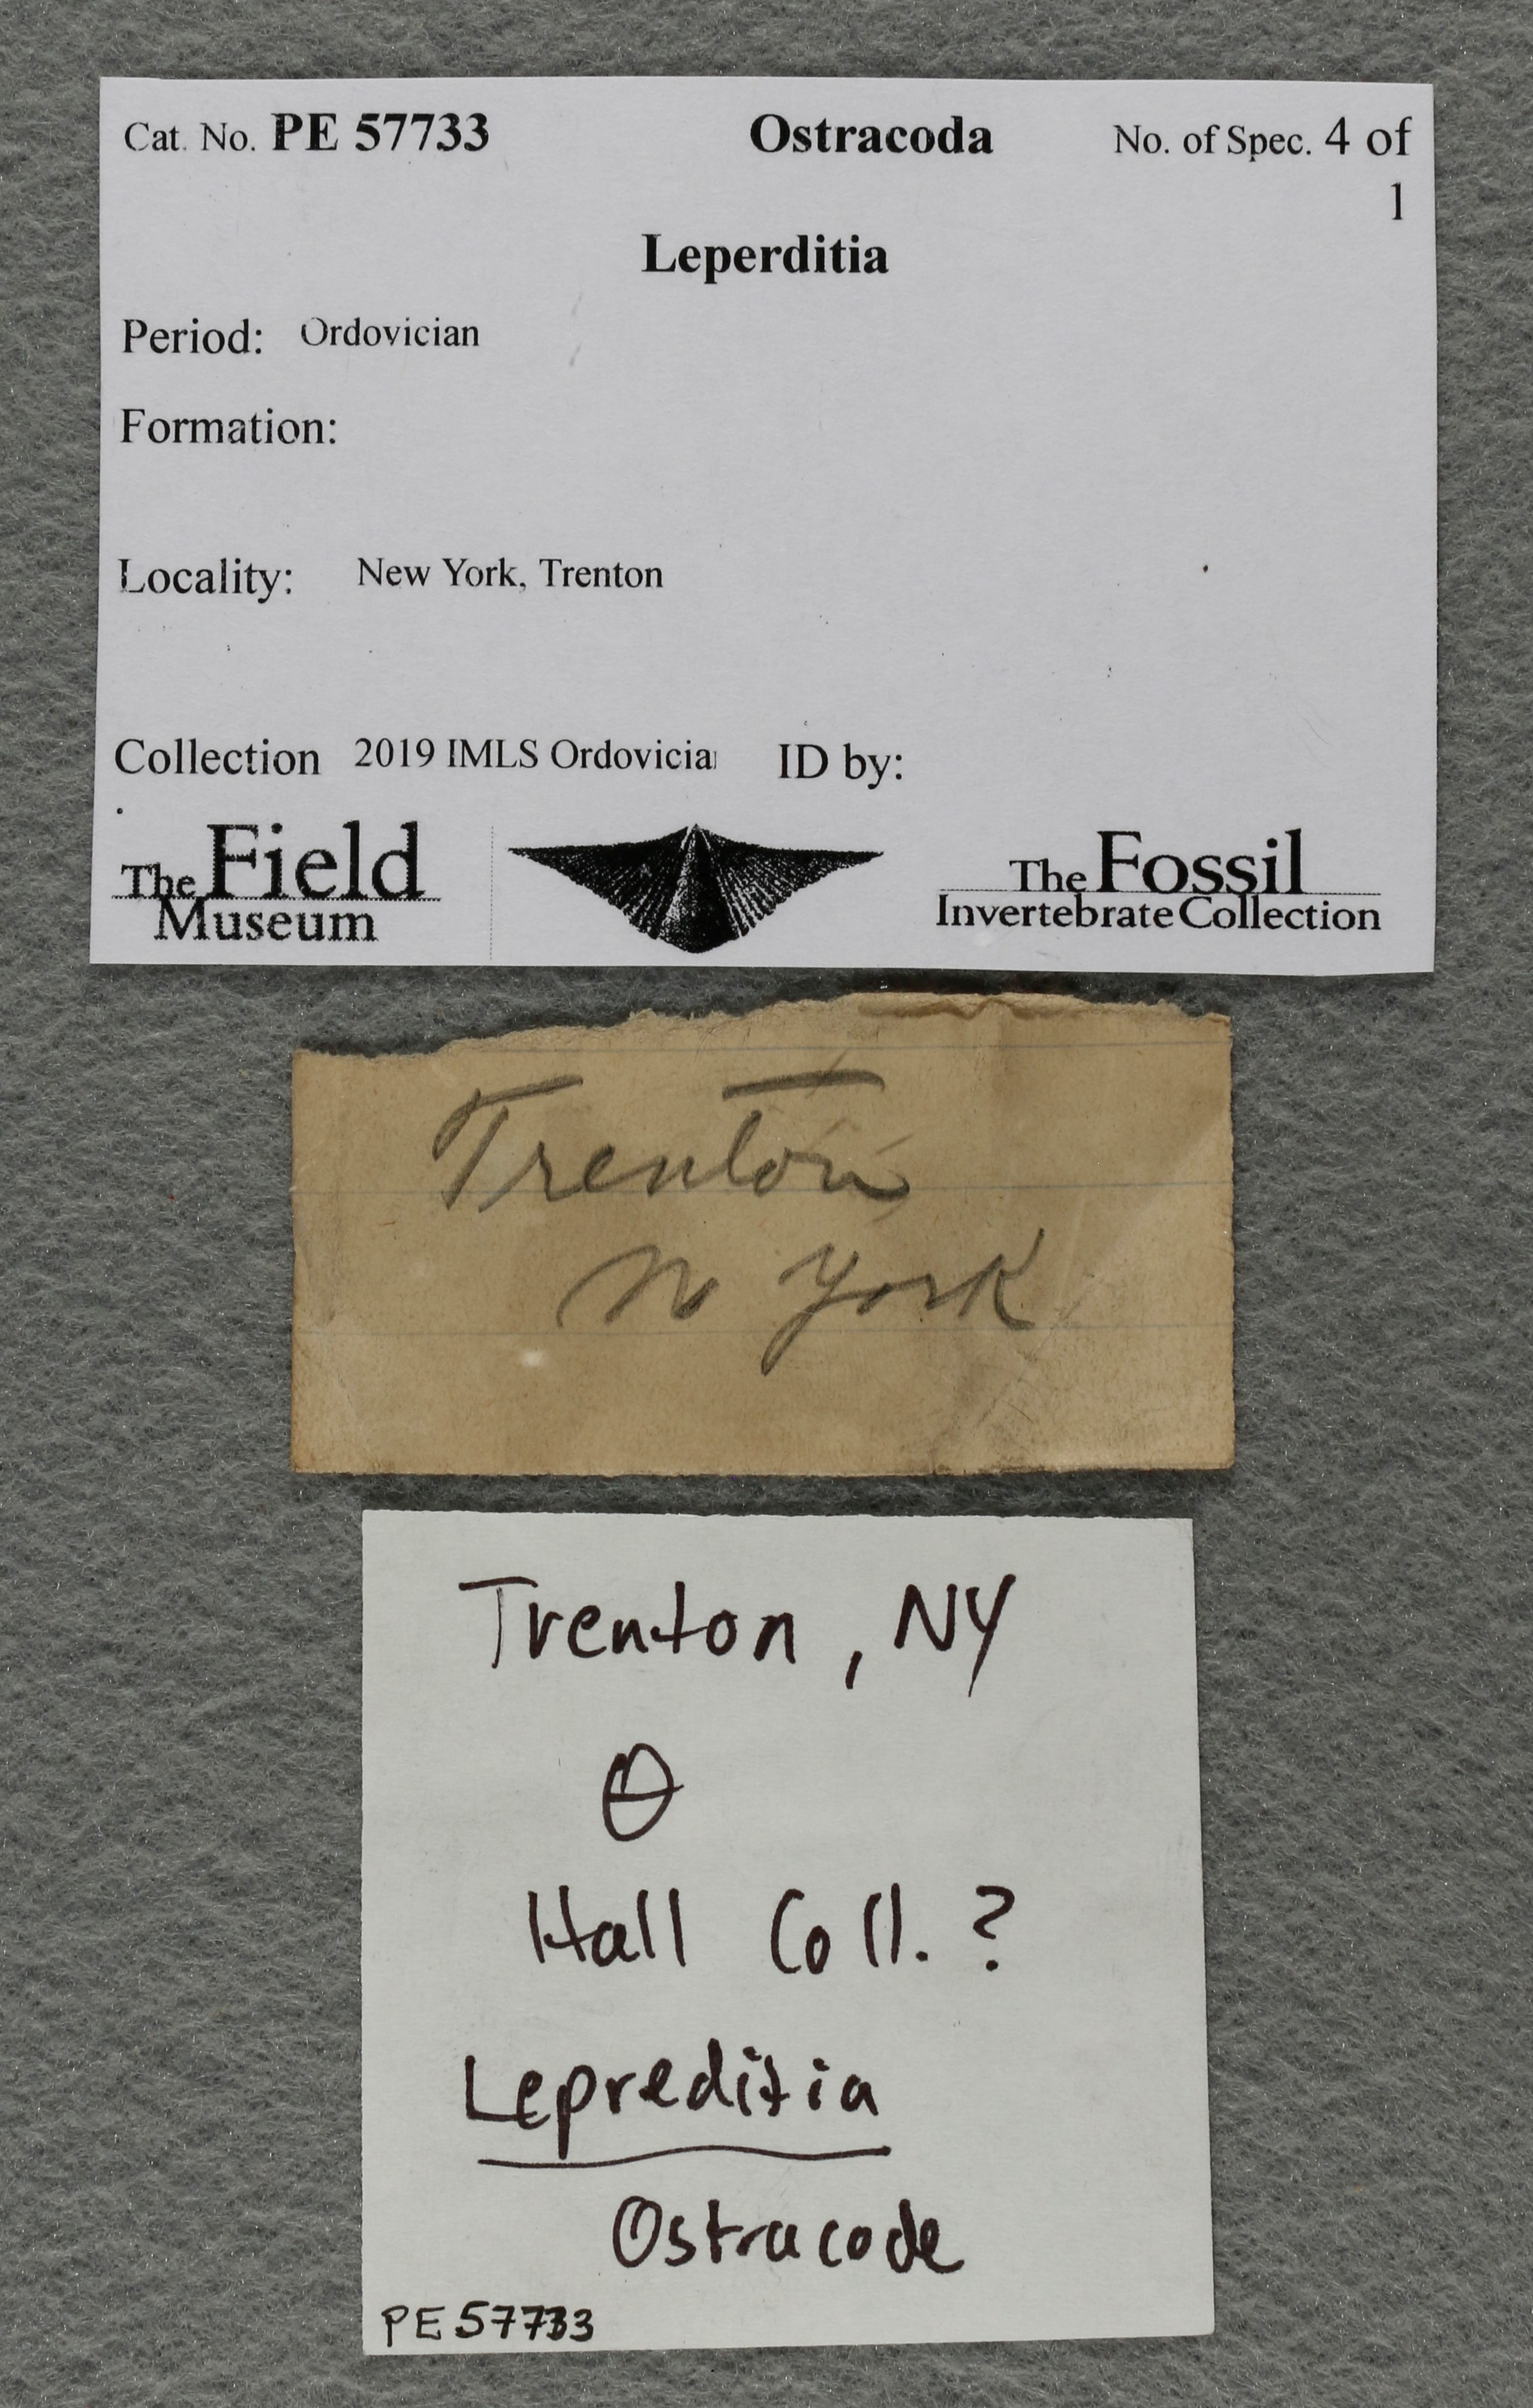 Cat. No. PE 57733 Ostracoda No. of Spec. 4 of
1
Leperditia
Period: Ordovician
Formation:
Locality: New York, Trenton
Collection 2019 IMLS Ordovicia ID by:
The Field
Museum
The Fossil
Invertebrate Collection
Trenton
N York
Trenton, NY
Ɵ
Hall Coll. ?
Lepreditia
Ostracode
PE57733